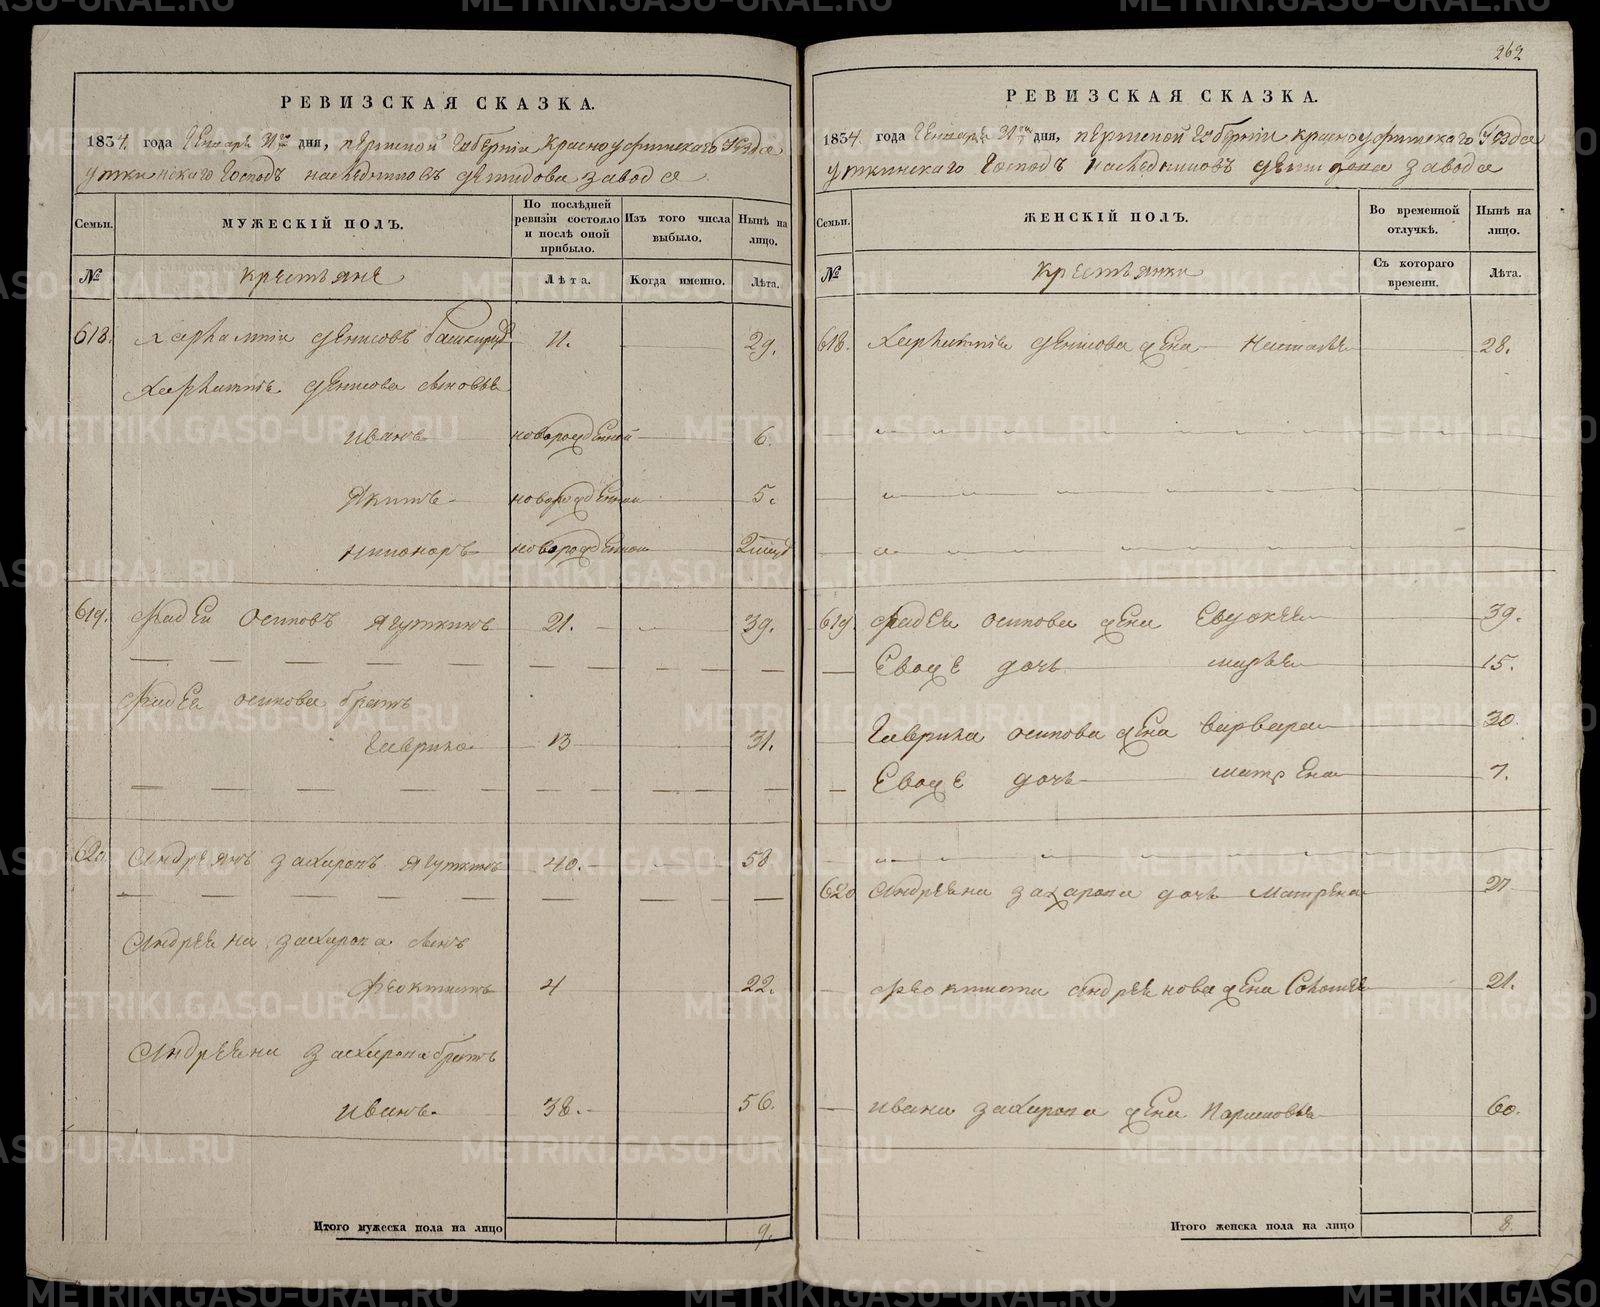 262
РЕВИЗСКАЯ СКАЗКА.
1834. года Генваря 31го дня, пермской губернiи красноуфимскаго уезда
уткинскаго господъ наследниковъ демидова завода
Семьи.
МУЖЕСКIЙ ПОЛЪ.
По послѣдней ревизiи состояло и послѣ оной прибыло.
Изъ того числа выбыло.
Нынѣ на лицо.
№
крестьяне
Лѣта.
Когда именно.
Лѣта.
618. Харлампiи денисовъ 11. 29.
Харлампiя денисова сыновья
иванъ новорожденной 6.
Якимъ новорожденной 5.
никоноръ новорожденной
619. Фадеи осиповъ Ягуткинъ 21. 39.
Фадея осипова братъ
Гаврила 13 31.
620 Андреянъ захаровъ Ягуткинъ 40. 58
Андреяна захарова сынъ
Феоктистъ 4 22.
Андреяна захарова братъ
иванъ 38. 56.
Итого мужеска пола на лицо 9.
РЕВИЗСКАЯ СКАЗКА.
1834. года Генваря 31го дня, пермской губернiи красноуфимскаго уезда
уткинскаго господъ наследниковъ демидова завода
Семьи.
ЖЕНСКIЙ ПОЛЪ.
Во временной отлучкѣ.
Нынѣ на лицо.
№
крестьянки
Съ котораго времени.
Лѣта.
618. Харлампiя денисова жена Насталья 28.
619 Фадея осипова жена Евдокея 39.
Еваже дочь марья 15.
Гаврила осипова жена варвара 30.
Еваже дочь матрена 7.
620 Андреяна захарова дочь Матрена 27
Феоктиста андреянова жена Соломея 21.
ивана захарова жена Парасковья 60.
Итого женска пола на лицо 8.
METRIKI.GASO-URAL.RU